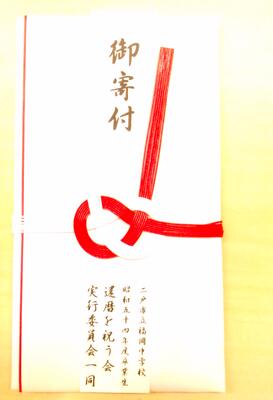 御寄付
二戸市立福岡中学校
昭和五十四年度卒業生
還暦を祝う会
実行委員会一同